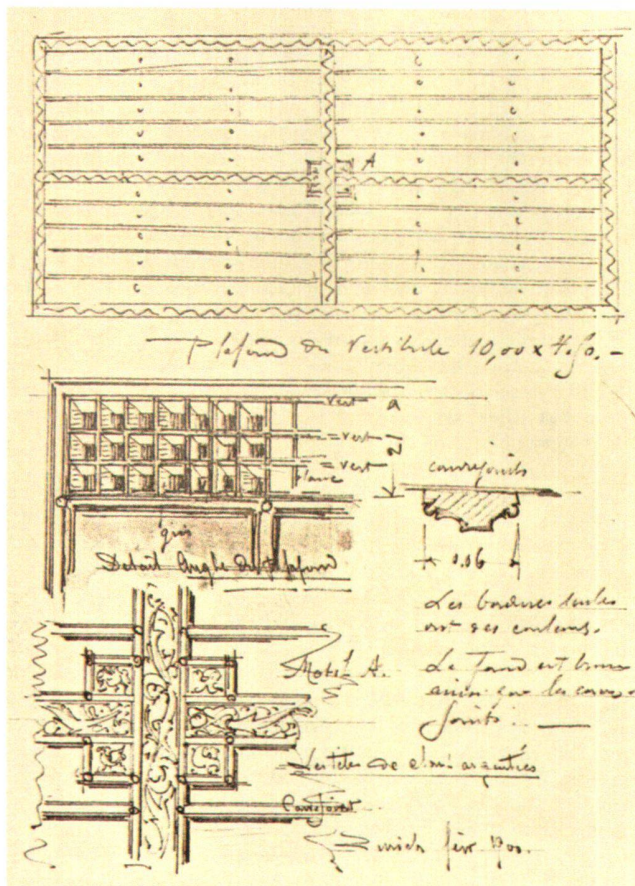 A
Plafond du Vestibule 10,00 x 4.50. -
vert
a
= vert
21
= vert
blanc
couvrejoints
gris
Détail Angle du Plafond
0.06
Les bordures seules
ont des couleurs.
Motif A.
Le Fond est brun
ainsi que les couvre-
joints.
Les têtes de clous argentées
Couvrejoint
Zurich févr 1900.